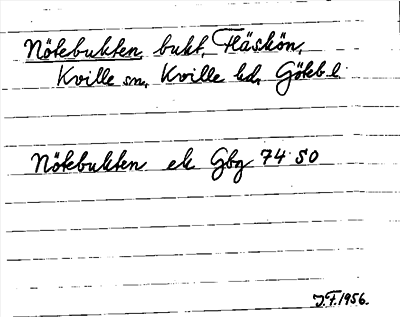 Nötebukten, bukt, Fläskön,
Kville sn, Kville hd, Götebl.
Nötebukten ek Gbg 74 SO
J.F. 1956.